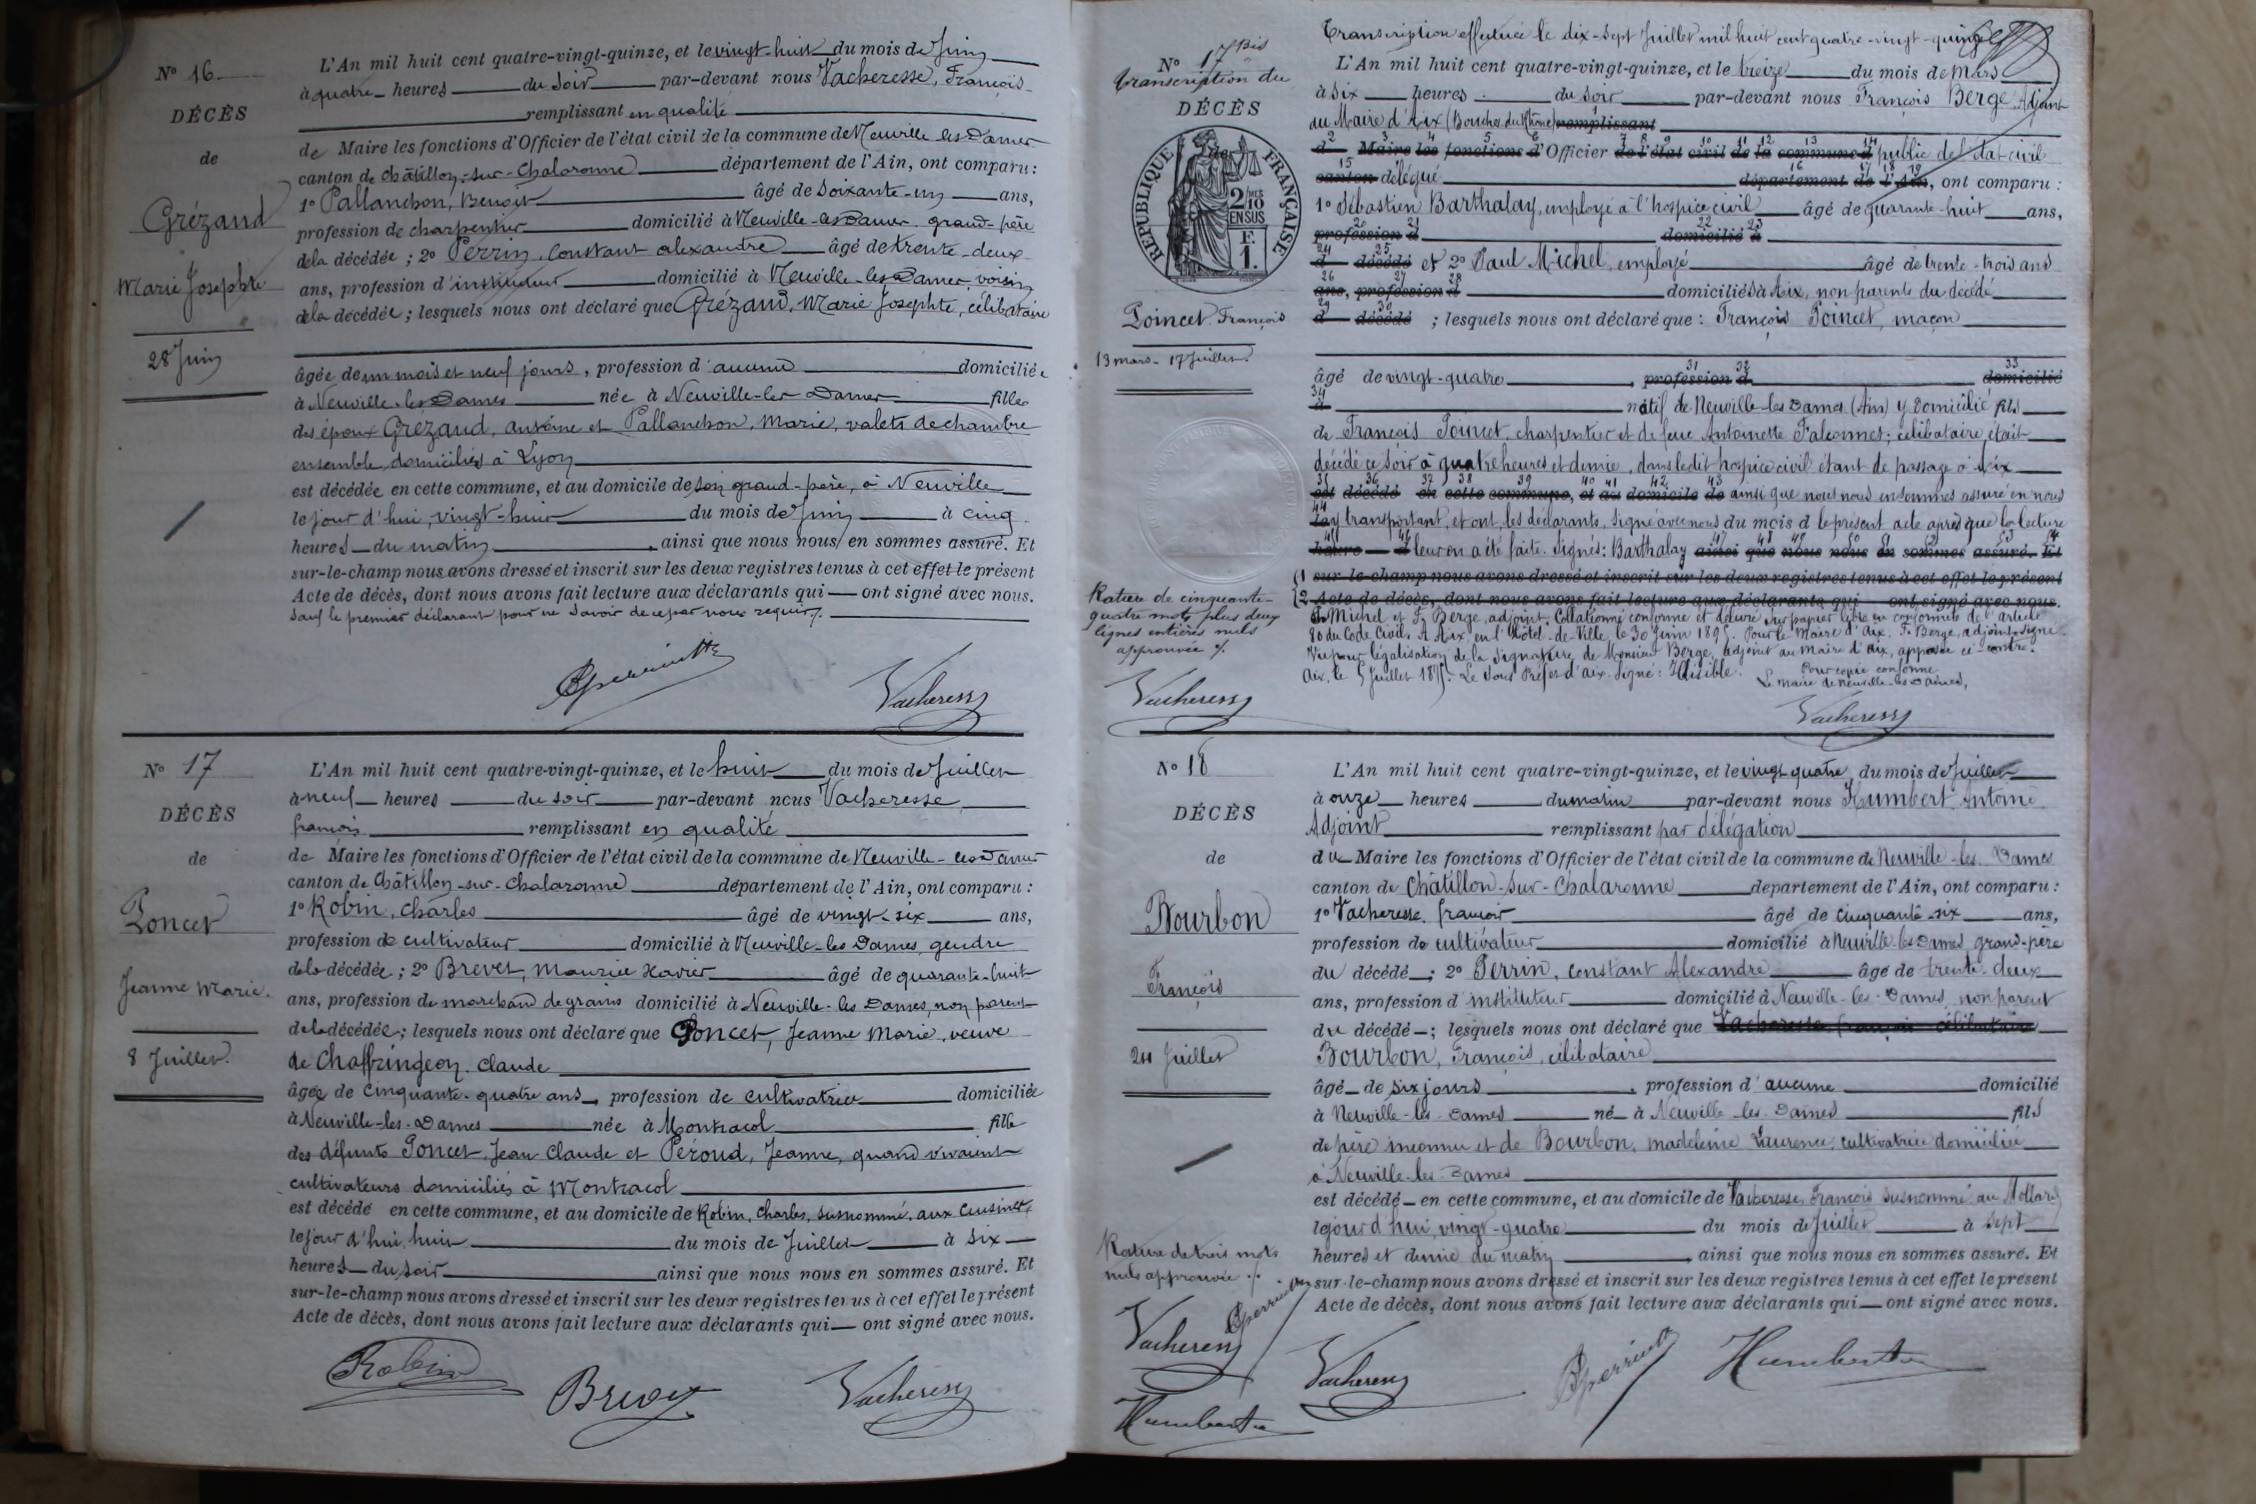 N° 16
DÉCÈS
de
Grézaud
Marie Josephte
28 Juin
L'An mil huit cent quatre-vingt-quinze, et le vingt-huit du mois de Juin
à quatre heures du soir par-devant nous Vacheresse, François
remplissant en qualité
de Maire les fonctions d'Officier de l'état civil de la commune de Neuville les Dames
canton de Châtillon-sur-Chalaronne département de l'Ain, ont comparu :
1° Pallanchon, Benoit âgé de soixante-un ans,
profession de charpentier domicilié à Neuville-les-Dames grand-père
de la décédée ; 2° Perrin, Constant alexandre âgé de trente-deux
ans, profession d'instituteur domicilié à Neuville-les-Dames, voisin
de la décédée ; lesquels nous ont déclaré que Grézaud, Marie Josephte, célibataire
âgée de un mois et neuf jours, profession d'aucune domiciliée
à Neuville-les-Dames née à Neuville-les-Dames fille
des époux Grézaud, antoine et Pallanchon, Marie, valets de chambre
ensemble domiciliés à Lyon
est décédée en cette commune, et au domicile de son grand-père, à Neuville
le jour d'hui, vingt-huit du mois de Juin à cinq
heures du matin, ainsi que nous nous en sommes assuré. Et
sur-le-champ nous avons dressé et inscrit sur les deux registres tenus à cet effet le présent
Acte de décès, dont nous avons fait lecture aux déclarants qui ont signé avec nous.
sauf le premier déclarant pour ne savoir de ce par nous requis.
Cperrin
Vacheresse
N° 17
DÉCÈS
de
Poncet
Jeanne Marie.
8 Juillet.
L'An mil huit cent quatre-vingt-quinze, et le huit du mois de Juillet
à neuf heures du soir par-devant nous Vacheresse
françois remplissant en qualité
de Maire les fonctions d'Officier de l'état civil de la commune de Neuville-les-Dames
canton de Châtillon-sur-Chalaronne département de l'Ain, ont comparu :
1° Robin, Charles âgé de vingt-six ans,
profession de cultivateur domicilié à Neuville-les-Dames, gendre
de la décédée ; 2° Brevet, Maurice Xavier âgé de quarante-huit
ans, profession de marchand de grains domicilié à Neuville-les-Dames, non parent
de la décédée ; lesquels nous ont déclaré que Poncet, Jeanne Marie, veuve
de Chaffringeon, Claude
âgée de cinquante-quatre ans, profession de cultivatrice domiciliée
à Neuville-les-Dames née à Montracol fille
des défunts Poncet, Jean Claude et Péroud, Jeanne, quand vivaient
cultivateurs domiciliés à Montracol
est décédé en cette commune, et au domicile de Robin, Charles, susnommé, aux
le jour d'hui, huit du mois de Juillet à six
heures du soir ainsi que nous nous en sommes assuré. Et
sur-le-champ nous avons dressé et inscrit sur les deux registres tenus à cet effet le présent
Acte de décès, dont nous avons fait lecture aux déclarants qui ont signé avec nous.
Robin
Brevet
Vacheresse
Transcription effectuée le dix-sept Juillet mil huit cent quatre-vingt-quinze
N° 17 Bis
transcription du
DÉCÈS
RÉPUBLIQUE FRANÇAISE
2/10
EN SUS
F.
1.
Poincet François
13 mars - 17 Juillet.
L'An mil huit cent quatre-vingt-quinze, et le treize du mois de Mars
à six heures du soir par-devant nous François Berge Adjoint
au Maire d'Aix (Bouches du Rhône) remplissant
de Maire les fonctions d'Officier de l'état civil de la commune d public de l'état civil
canton délégué département de l'Ain, ont comparu :
1° Sébastien Barthalay, employé à l'hospice civil âgé de quarante-huit ans,
profession d domicilié à
d décédé et 2° Paul Michel, employé âgé de trente-trois ans
ans, profession d domiciliés à Aix, non parents du décédé
d décédé ; lesquels nous ont déclaré que : François Poincet, maçon
âgé de vingt-quatre, profession d domicilié
à natif de Neuville-les-Dames (Ain) y domicilié fils
de François Poincet, charpentier et de feue Antoinette Falconnet ; célibataire, était
décédé ce soir à quatre heures et demie, dans ledit hospice civil étant de passage à Aix
est décédé en cette commune, et au domicile de ainsi que nous nous en sommes assuré en nous
y transportant, et ont, les déclarants, signé avec nous du mois d le présent acte après que la lecture
heure leur en a été faite. Signés : Barthalay ainsi que nous nous en sommes assuré. Et
sur-le-champ nous avons dressé et inscrit sur les deux registres tenus à cet effet le présent
Acte de décès, dont nous avons fait lecture aux déclarants qui ont signé avec nous.
P. Michel et F. Berge, adjoint. Collationné conforme et délivré sur papier libre en conformité de l'article
80 du Code Civil. A Aix, en l'Hôtel-de-Ville, le 30 Juin 1895. Pour le Maire d'Aix, F. Berge, adjoint signé.
Vu pour légalisation de la Signature de Monsieur Berge, adjoint au Maire d'Aix, apposée ci-contre.
Aix, le 5 Juillet 1895. Le Sous Préfet d'aix. Signé : Illisible.
Pour copie conforme
Le Maire de Neuville-les-Dames,
Vacheresse
Rature de cinquante-
quatre mots plus deux
lignes entières nuls
approuvée
Vacheresse
N° 18
DÉCÈS
de
Bourbon
François
24 Juillet
L'An mil huit cent quatre-vingt-quinze, et le vingt-quatre, du mois de Juillet
à onze heures du matin par-devant nous Humbert Antoine
Adjoint remplissant par délégation
du Maire les fonctions d'Officier de l'état civil de la commune de Neuville-les-Dames
canton de Châtillon-sur-Chalaronne département de l'Ain, ont comparu :
1° Vacheresse, françois âgé de cinquante-six ans,
profession de cultivateur domicilié à Neuville-les-Dames grand-père
du décédé ; 2° Perrin, Constant Alexandre âgé de trente-deux
ans, profession d'instituteur domicilié à Neuville-les-Dames, non parent
du décédé ; lesquels nous ont déclaré que Vacheresse françois célibataire
Bourbon, François, célibataire
âgé de six jours, profession d'aucune domicilié
à Neuville-les-Dames né à Neuville-les-Dames fils
de père inconnu et de Bourbon, madeleine Laurence, cultivatrice domiciliée
à Neuville-les-Dames
est décédé en cette commune, et au domicile de Vacheresse, François susnommé au Mollard
le jour d'hui, vingt-quatre du mois de Juillet à sept
heures et demie du matin, ainsi que nous nous en sommes assuré. Et
sur-le-champ nous avons dressé et inscrit sur les deux registres tenus à cet effet le présent
Acte de décès, dont nous avons fait lecture aux déclarants qui ont signé avec nous.
Rature de trois mots
nuls approuvée
Vacheresse
Cperrin
Humbert
Vacheresse
Cperrin
Humbert